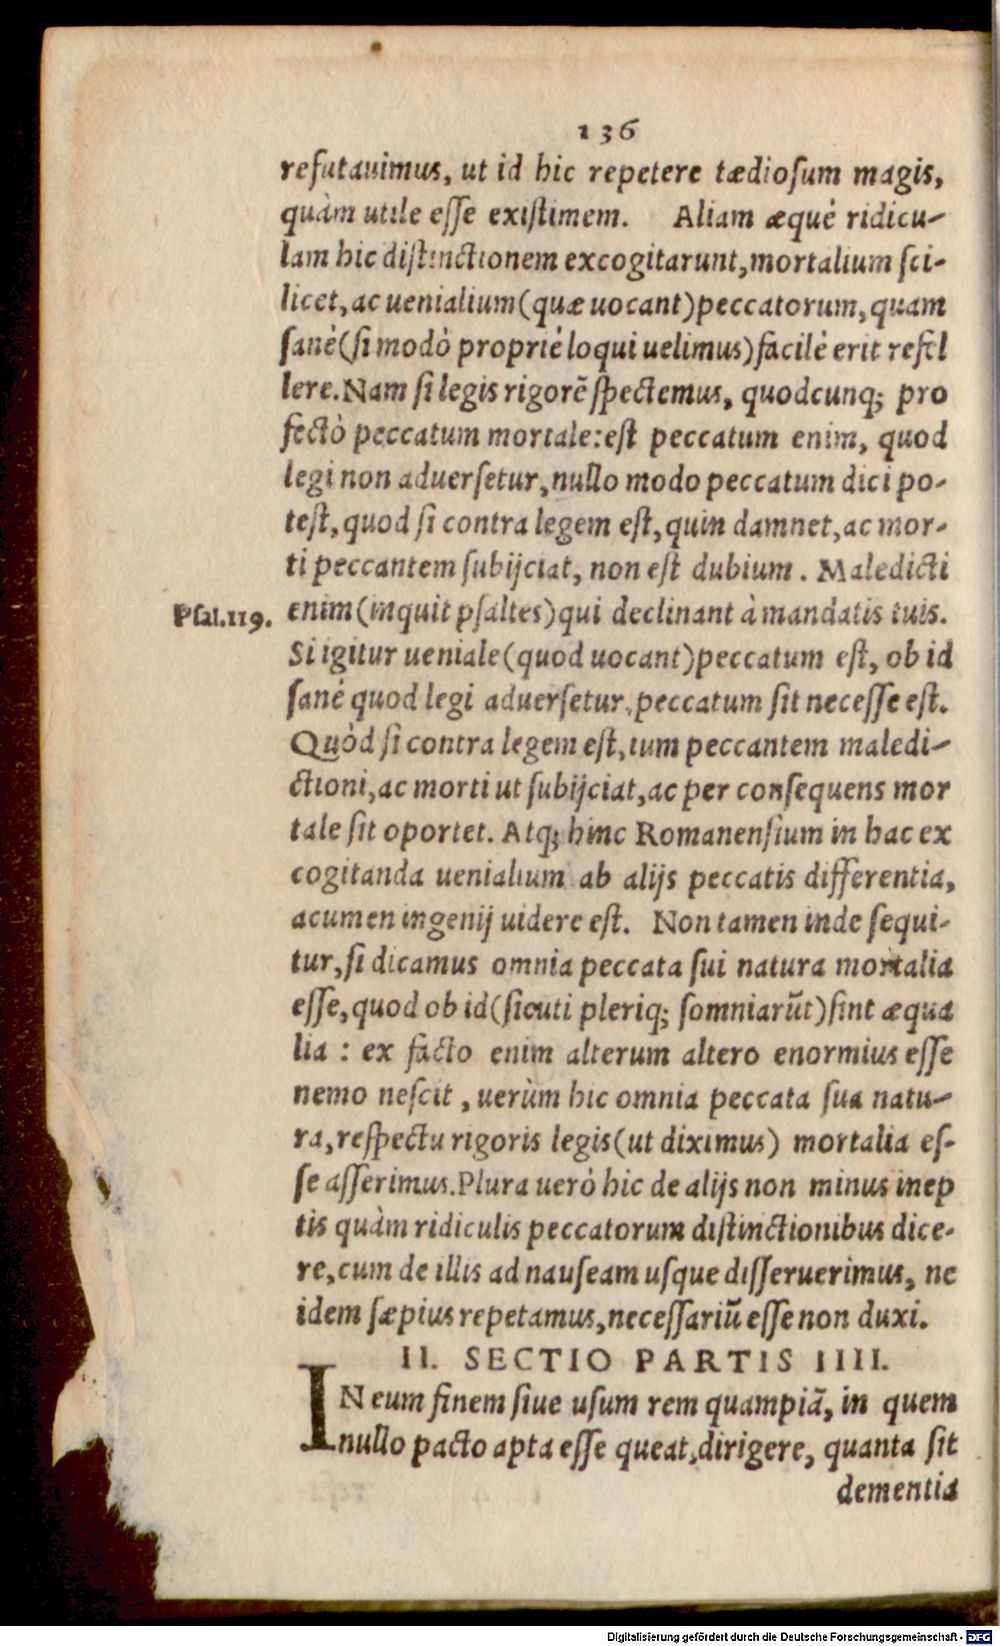 136
refutauimus, ut id hic repetere tædiosum magis,
quàm utile esse existimem. Aliam æqué ridicu-
lam hic distinctionem excogitarunt, mortalium sci-
licet, ac uenialium (quæ uocant) peccatorum, quam
sané (si modò proprié loqui uelimus) facilé erit refel
lere. Nam si legis rigorē spectemus, quodcunq; pro
fectò peccatum mortale: est peccatum enim, quod
legi non aduersetur, nullo modo peccatum dici po-
test, quod si contra legem est, quin damnet, ac mor-
ti peccantem subijciat, non est dubium. Maledicti
Psal.119. enim (inquit psaltes) qui declinant à mandatis tuis.
Si igitur ueniale (quod uocant) peccatum est, ob id
sané quod legi aduersetur, peccatum sit necesse est.
Quòd si contra legem est, tum peccantem maledi-
ctioni, ac morti ut subijciat, ac per consequens mor
tale sit oportet. Atq; hinc Romanensium in hac ex
cogitanda uenialium ab alijs peccatis differentia,
acumen ingenij uidere est. Non tamen inde sequi-
tur, si dicamus omnia peccata sui natura mortalia
esse, quod ob id (sicuti pleriq; somniarūt) sint æqua
lia : ex facto enim alterum altero enormius esse
nemo nescit, uerùm hic omnia peccata sua natu-
ra, respectu rigoris legis (ut diximus) mortalia es-
se asserimus. Plura uerò hic de alijs non minus inep
tis quàm ridiculis peccatorum distinctionibus dice-
re, cum de illis ad nauseam usque disseruerimus, ne
idem sæpius repetamus, necessariū esse non duxi.
II. SECTIO PARTIS IIII.
IN eum finem siue usum rem quampiā, in quem
nullo pacto apta esse queat, dirigere, quanta sit
dementia
Digitalisierung gefördert durch die Deutsche Forschungsgemeinschaft - DFG